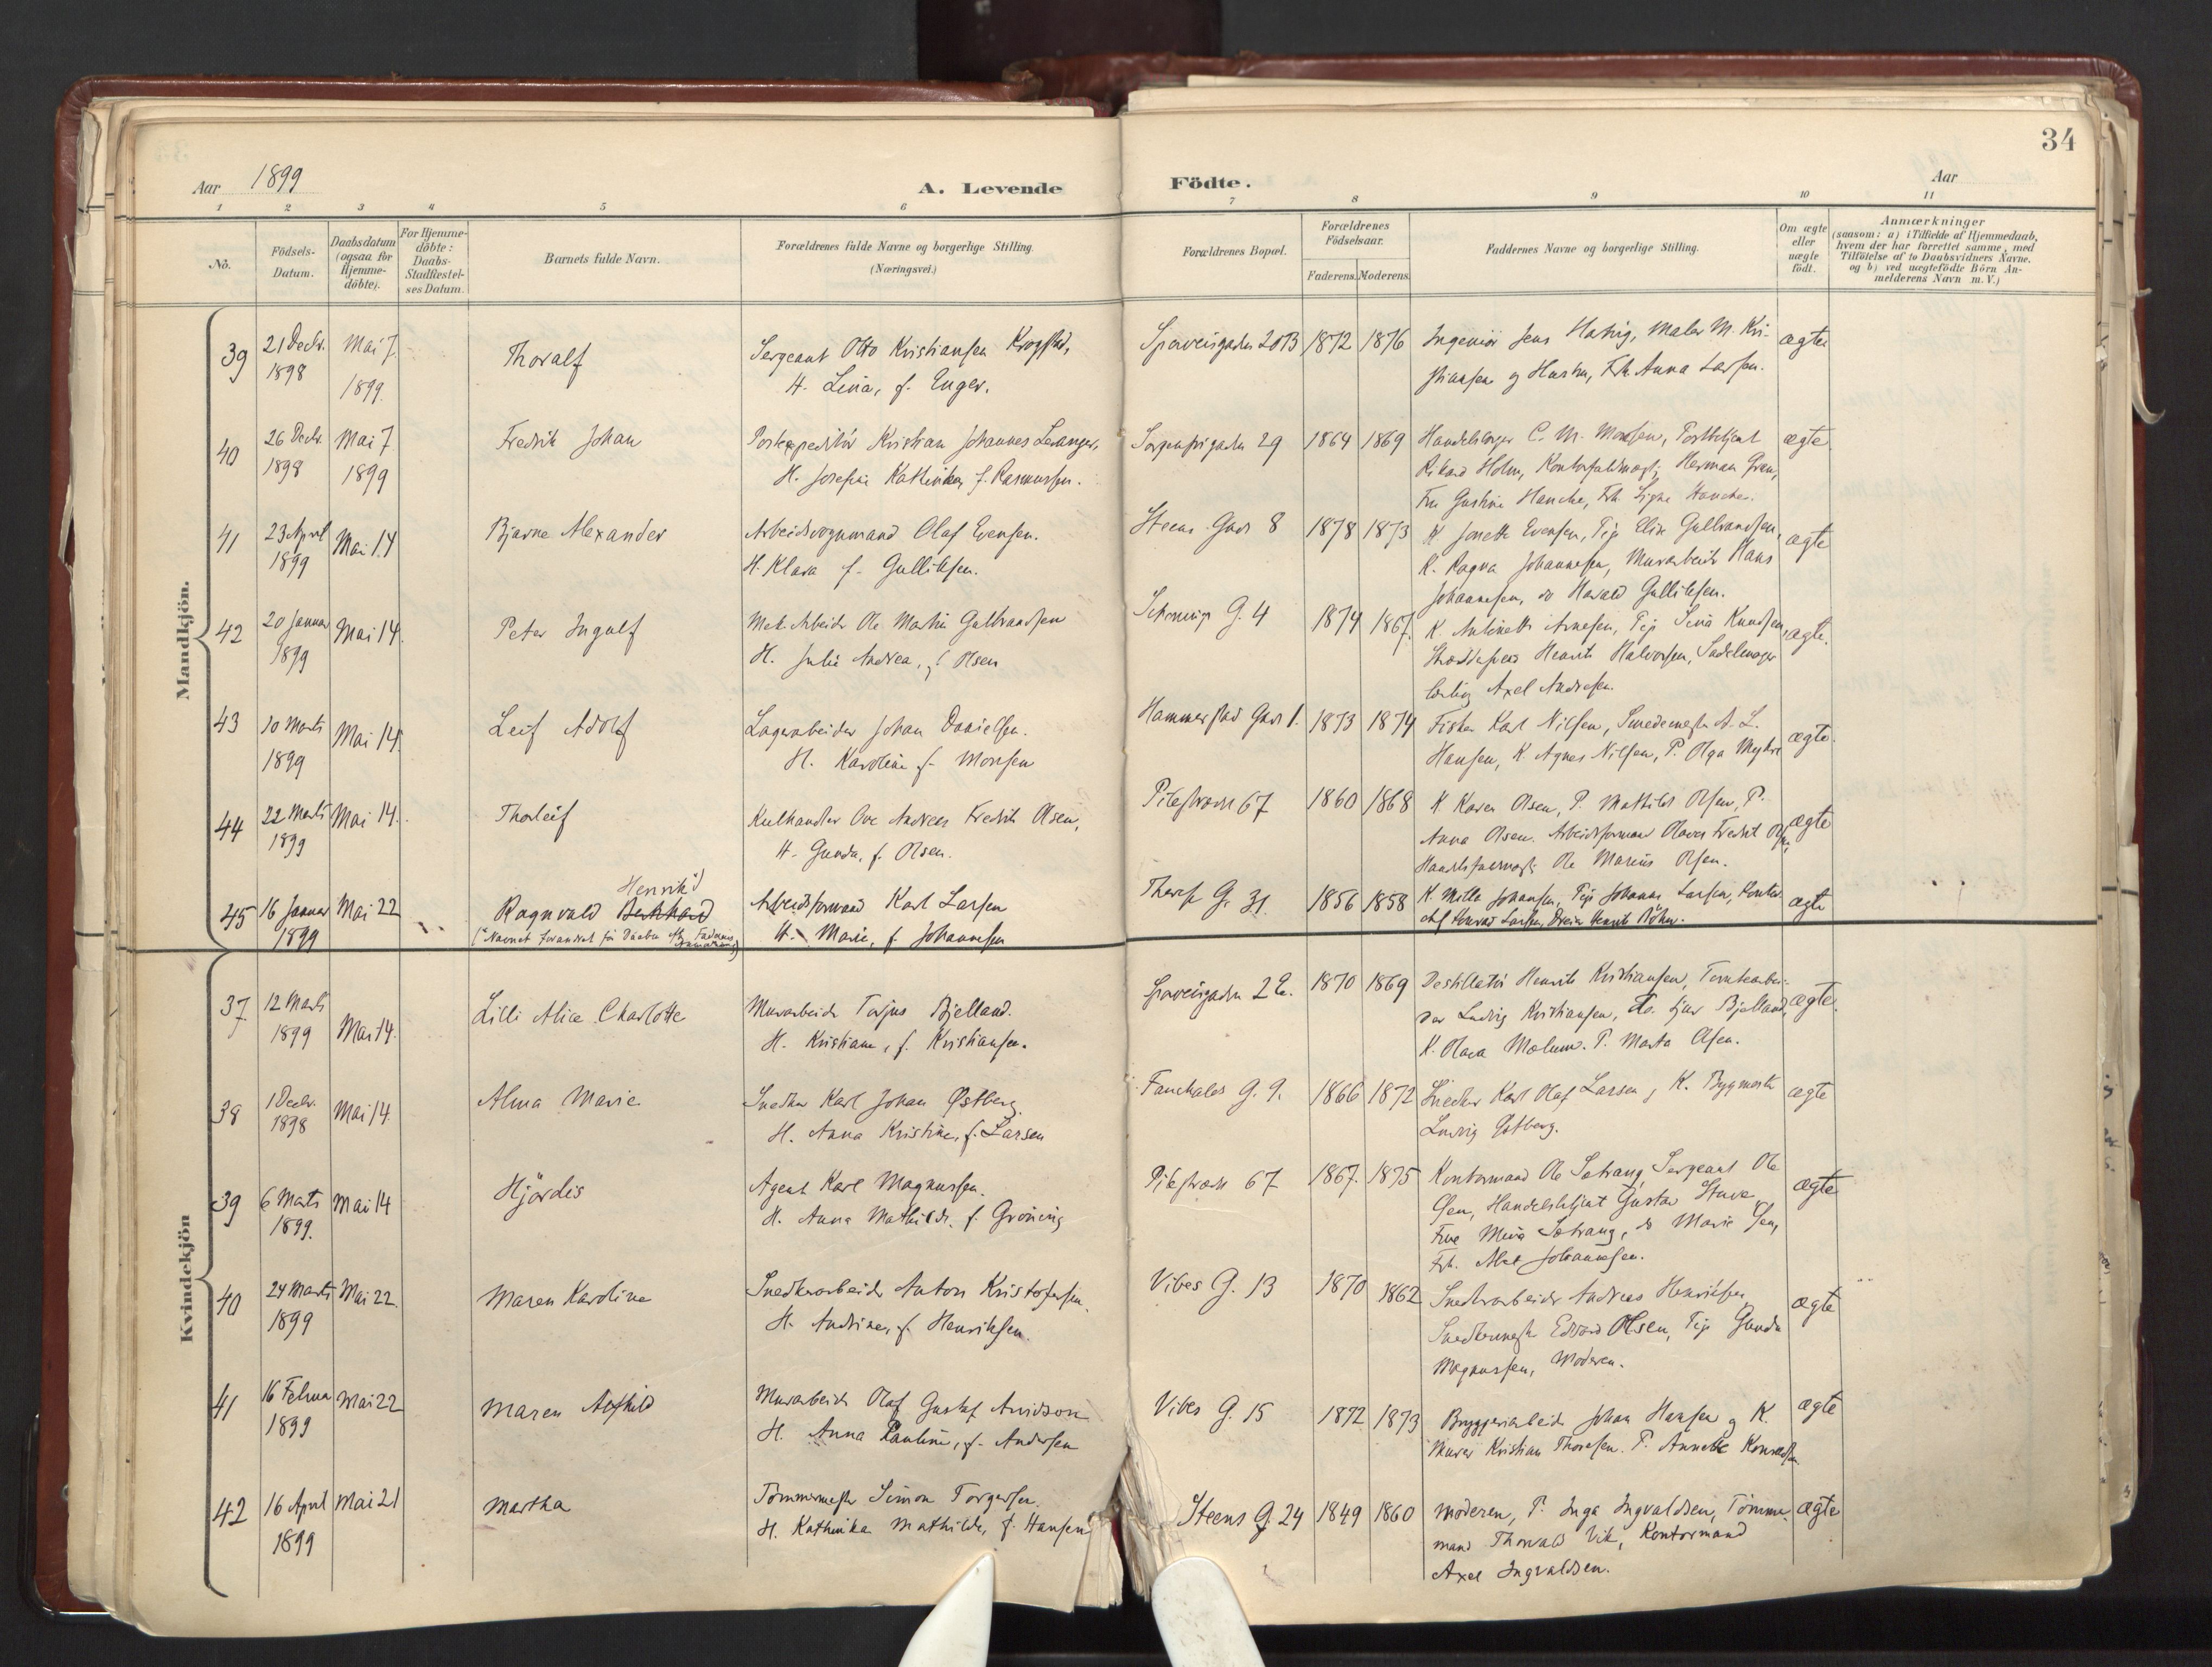 34
Aar 1899
A. Levende Födte.
Aar
1 2 3 4 5 6 7 8 9 10 11
No.
Födsels-Datum.
Daabsdatum (ogsaa for Hjemme-döbte).
For Hjemme-döbte: Daabs-Stadfæstel-ses Datum.
Barnets fulde Navn.
Forældrenes fulde Navne og borgerlige Stilling. (Næringsvei.)
Forældrenes Bopæl.
Forældrenes Födselsaar.
Faderens. Moderens.
Faddernes Navne og borgerlige Stilling.
Om ægte eller uægte födt.
Anmærkninger
(saasom: a) i Tilfælde af Hjemmedaab, hvem der har forrettet samme, med Tilföielse af to Daabsvidners Navne. og b) ved uægtefödte Börn An-melderens Navn m.V.)
Mandkjön.
39 21 Decbr. 1898 Mai 7 1899. Thoralf
Sergeant Otto Kristiansen Krogstad,
H. Lina, f. Enger.
20B 1872 1876 Ingeniör Jens Maler M. Kri-
stiansen og Hustru, Frk. Anna Larsen. ægte
40 26 Decbr. 1898 Mai 7 1899 Fredrik Johan
Postexpeditör Kristian Johannes Levanger,
H. Josefine Kathinka, f. Rasmussen.
Sorgenfrigaden 29 1864 1869 Handelsborger C. M. Monsen, Postbetjent
Rikard Holm, Herman Gran,
Fru Gustine Hanche, Frk. Signe Hanche. ægte
41 23 April 1899 Mai 14 Bjarne Alexander
Arbeidsvognmand Olaf Evensen.
H. Klara f. Gulliksen.
Steens Gade 8 1878 1873 K Josette Evensen, Pige Elise Gulbrandsen,
K. Ragna Johannesen, Murarbeider Hans
Johannesen, do Harald Gulliksen. ægte
42 20 Januar 1899 Mai 14. Peter Ingolf
Mek. Arbeider Ole Martin Gulbrandsen
H. Julie Andrea, f. Olsen
Schønings G. 4 1874 1867. K. Antinette Arnesen, Pige Lina Knudsen,
Henrik Halvorsen, Sadelmager
lærling Axel Andresen. ægte.
43 10 Marts 1899 Mai 14. Leif Adolf
Lagerarbeider Johan Danielsen.
H. Karoline f. Monsen
Hammerstad Gade 1. 1873 1874 Fisker Karl Nilsen, Smedemester A. L.
Hansen, K. Agnes Nilsen, P. Olga ægte.
44 22 Marts 1899 Mai 14. Thorleif
Kulhandler Ove Andreas Fredrik Olsen,
H. Gunda, f. Olsen.
Pilestræde 67 1860 1868 K Karen Olsen, P. Mathilde Olsen, P.
Anna Olsen. Arbeidsformand Olaves Fredrik Olsen,
Handelsfuldmægt. Ole Marius Olsen. ægte
45 16 Januar 1899 Mai 22 Henrik*)
Ragnvald Bernhard
(*Navnet forandret før Daaben efter Faderens Anmodning)
Arbeidsformand Karl Larsen
H. Marie, f. Johannesen
Theres G. 31. 1856 1858 K. Milla Johansen, Pige Johanne Larsen, Kontor-
chef Konrad Larsen, Dreier Henrik Röhne. ægte
Kvindekjön
37 12 Marts 1899 Mai 14. Lilli Alice Charlotte
Murarbeider Torjus Bjelland.
H. Kristiane, f. Kristiansen.
1870 1869 Destillatör Henrik Kristiansen, Tomtearbei-
der Ludvig Kristiansen, do. Bjelland,
K. Olava Mælum. P. Marta Olsen. ægte.
38 1 Decbr. 1898 Mai 14. Alma Marie
Snedker Karl Johan Østberg.
H. Anna Kristine, f. Larsen
Fauchalds G. 9. 1866 1872 Snedker Karl Olaf Larsen, K. Bygmester
Ludvig Østberg. ægte
39 6 Marts 1899. Mai 14 Hjördis
Agent Karl Magnussen.
H. Anna Mathilde, f. Gröning
Pilestræde 67 1867. 1875 Kontormand Ole Sætrang, Sergeant Ole
Handelsbetjent Gustav
Frue Mina Sætrang, do Marie
Frk. Johannesen. ægte
40 24 Marts 1899 Mai 22. Maren Karoline
Snedkerarbeider Anton Kristofersen.
H. Andrine, f. Henriksen.
Vibes G. 13 1870 1862 Snedkerarbeider Andreas Henriksen,
Snedkermester Edvard Olsen, Pige Gunda
Magnussen, Moderen. ægte
41 16 Februar 1899 Mai 22 Maren
Murarbeider Olaf Gustaf Arvidson
H. Anna Pauline, f. Andersen
Vibes G. 15 1872 1873 Bryggeriarbeider Johan Hansen og K.
Murer Kristian Thoresen. P. Annette ægte
42 16 April 1899 Mai 21 Martha
Tömmermester Simon Torgersen.
H. Kathinka Mathilde, f. Hansen
Steens G. 24 1849 1860 Moderen, P. Inga Ingvaldsen, Tömmer-
mand Thorvald Vik, Kontormand
Axel Ingvaldsen. ægte